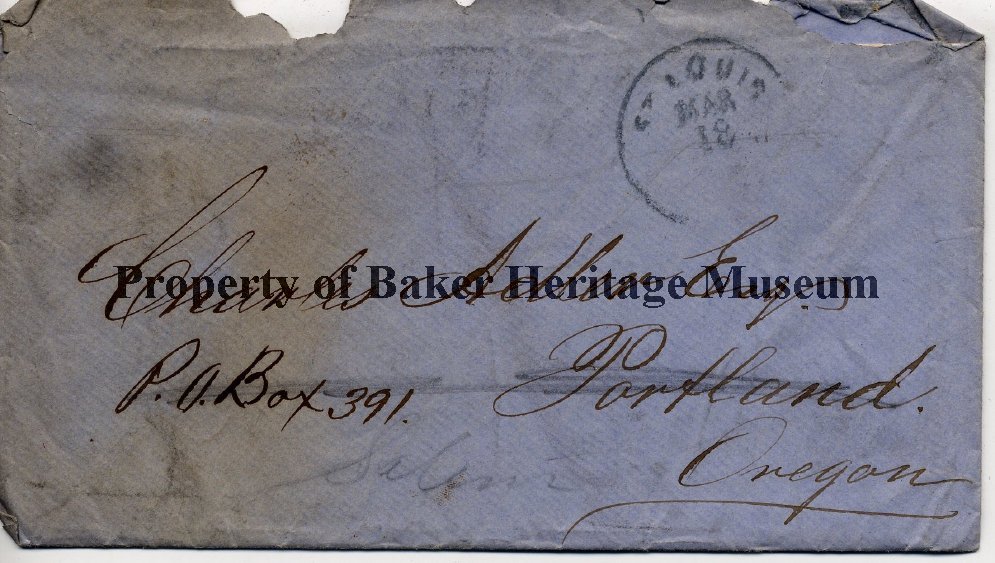 ST LOUIS
MAR
18
Charles Adler Esq.
Property of Baker Heritage Museum
P.O. Box 391. Portland.
Salem
Oregon